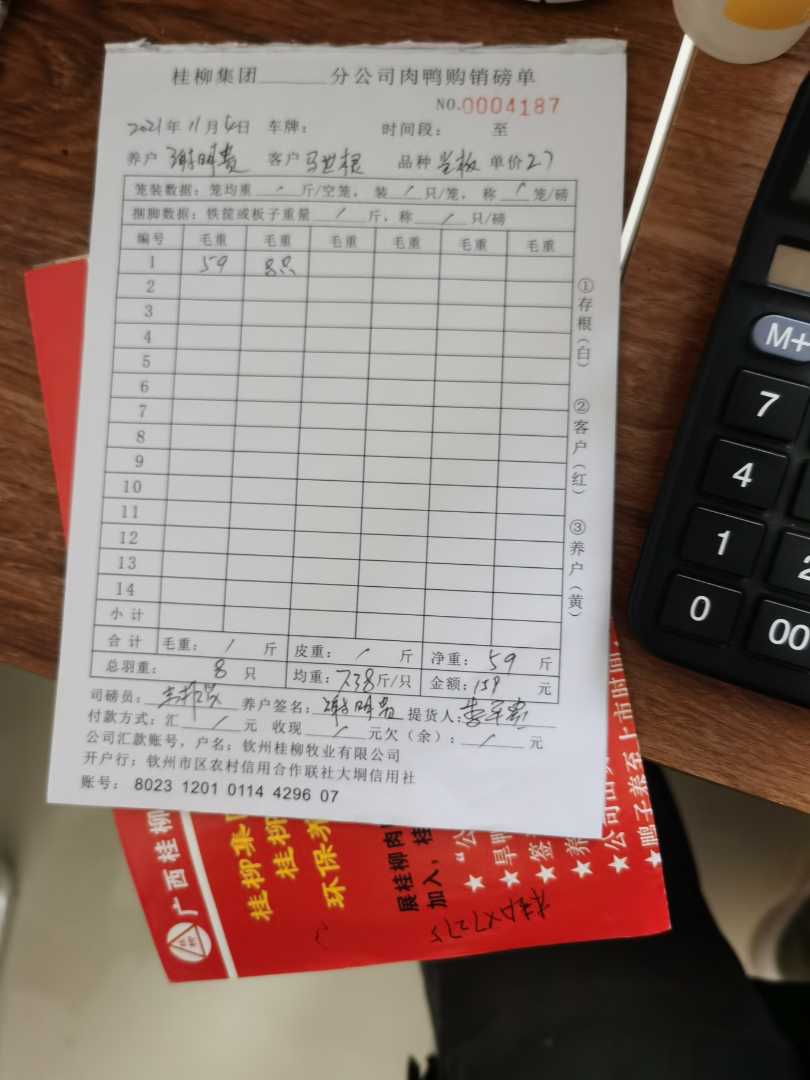 桂柳集团______分公司肉鸭购销磅单
NO.0004187
2021年11月6日 车牌: 时间段: 至
养户 谢明贵 客户 马世根 品种 单价 2.7
笼装数据:笼均重 / 斤/空笼,装 / 只/笼,称 / 笼/磅
捆脚数据:铁筐或板子重量 / 斤,称 / 只/磅
编号 毛重 毛重 毛重 毛重 毛重 毛重
1 59 8只
2
3
4
5
6
7
8
9
10
11
12
13
14
小计
合计 毛重: / 斤 皮重: / 斤 净重: 59 斤
总羽重: 8 只 均重: 7.38斤/只 金额: 159 元
司磅员: 养户签名: 谢明贵 提货人:
付款方式:汇 / 元 收现 / 元欠(余): / 元
公司汇款账号,户名:钦州桂柳牧业有限公司
开户行:钦州市区农村信用合作联社大垌信用社
账号: 8023 1201 0114 4296 07
①存根(白)
②客户(红)
③养户(黄)
M+
7
4
1
2
0
00
广西桂柳
桂柳集
桂柳
环保养
展桂柳肉
加入,桂
★“公
★旱鸭
★签
★养
★公司出
★鸭子养至上市时间,